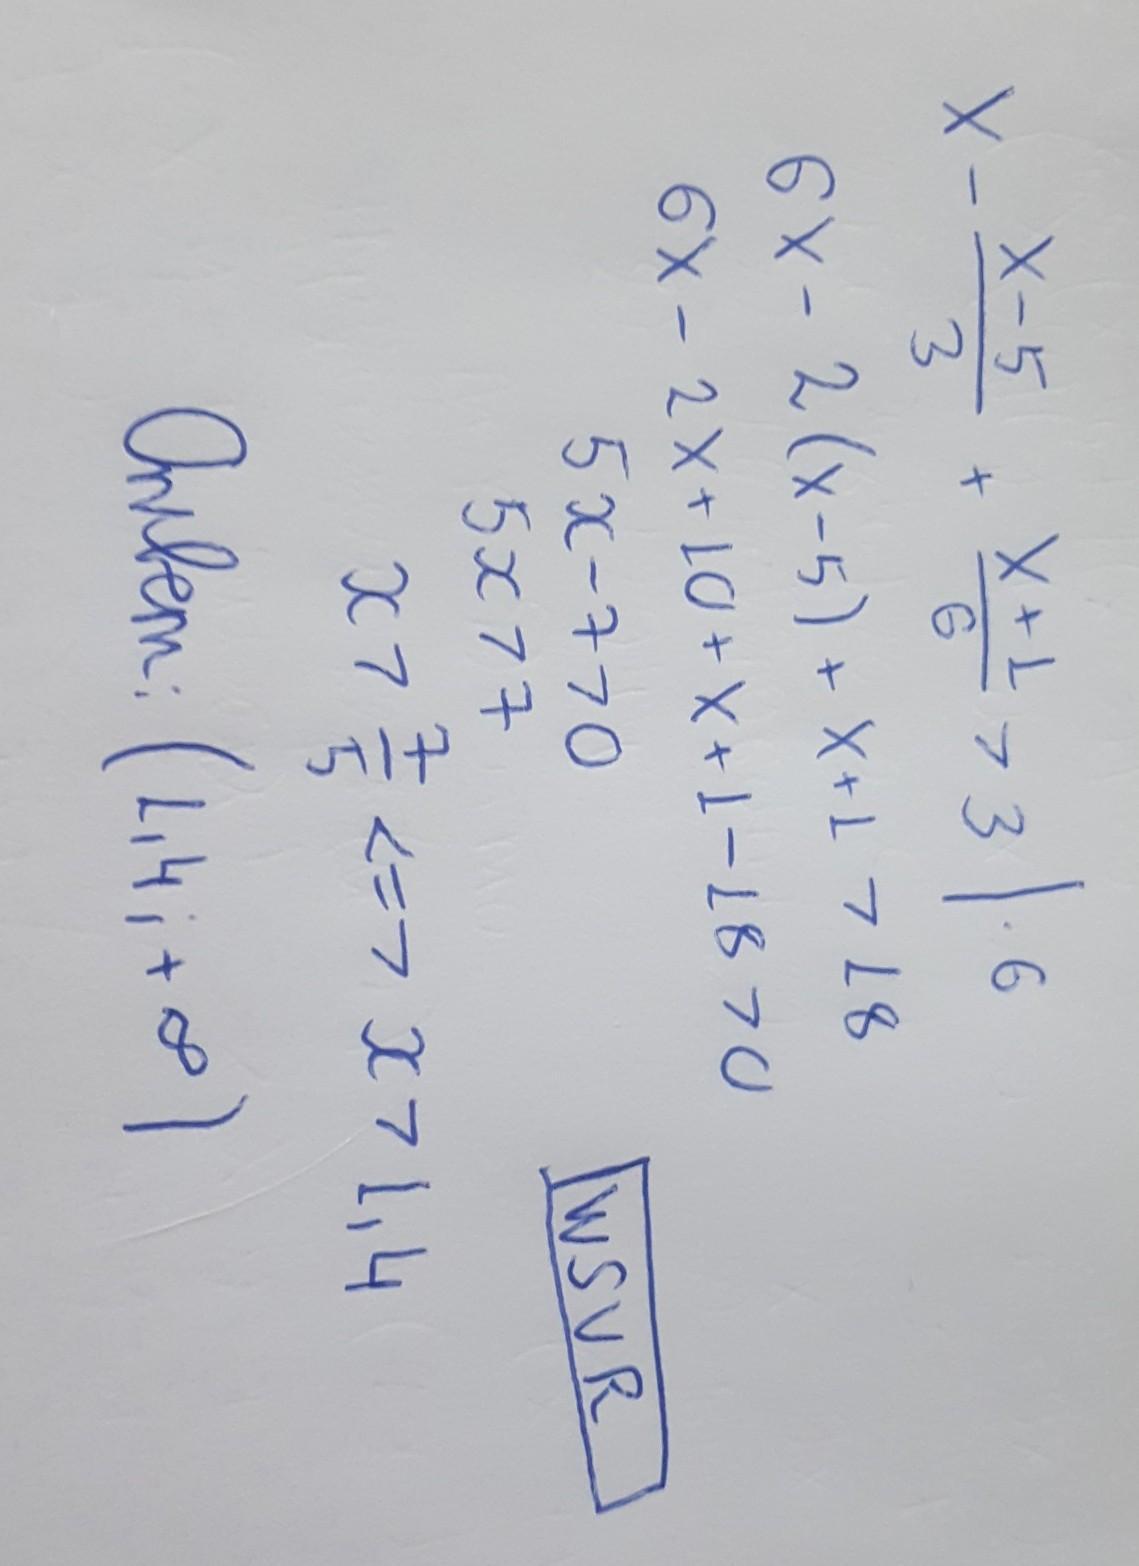 x - \frac{x-5}{3} + \frac{x+1}{6} > 3 | · 6
6x - 2(x-5) + x+1 > 18
6x - 2x+10 + x+1-18 > 0
5x-7>0
5x>7
x > \frac{7}{5} <=> x > 1,4
Ответ: (1,4; +∞)
WSVR